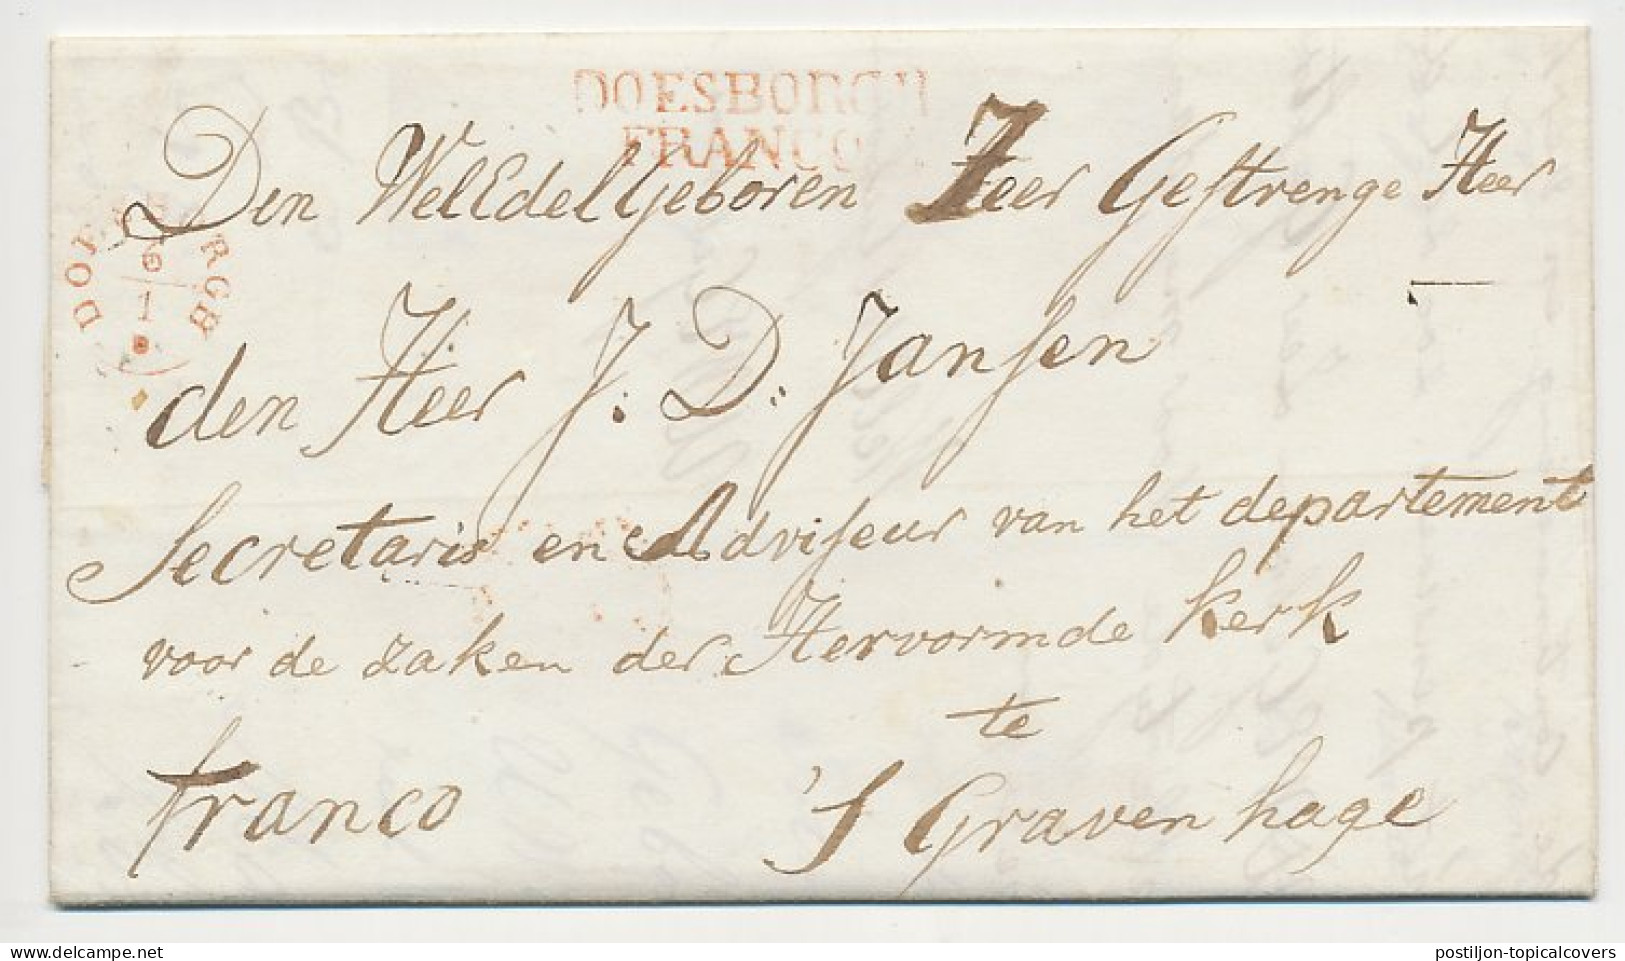 DOESBORGH
FRANCO
Den WelEdelGeboren Zeer Gestrenge Heer
den Heer J. D. Jansen
Secretaris en Adviseur van het departement
voor de zaken der Hervormde kerk
te
franco 's Gravenhage
postiljon-topicalcovers